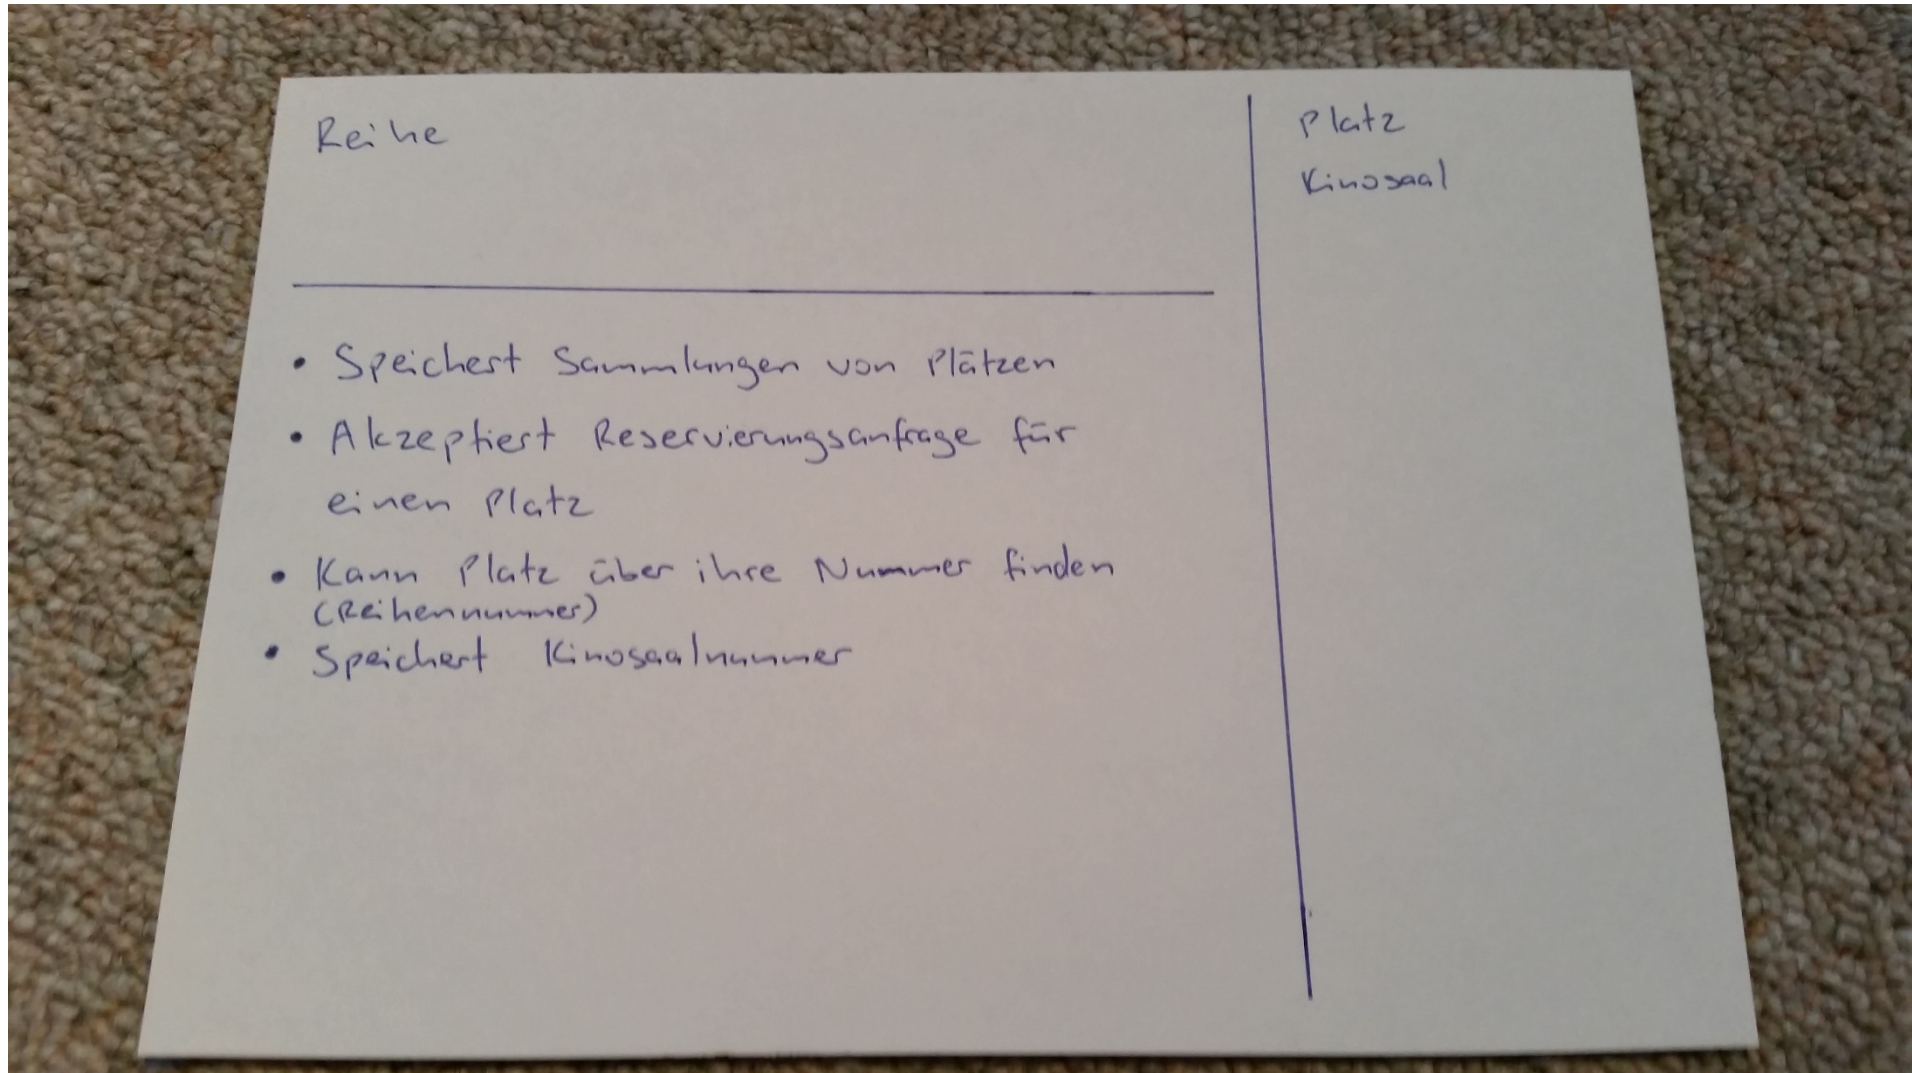 Reihe
• Speichert Sammlungen von Plätzen
• Akzeptiert Reservierungsanfrage für
einen Platz
• Kann Platz über ihre Nummer finden
(Reihennummer)
• Speichert Kinosaalnummer
Platz
Kinosaal